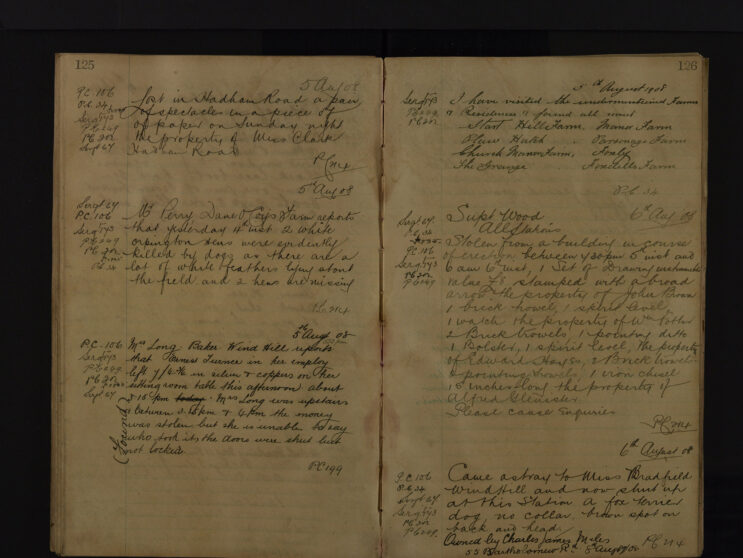 125
5 Aug 08
P.C. 106
P.C. 34
Sergt 93
P.C. 249
P.C. 202
Sergt 67
Lost in Hadham Road a pair
of spectacles in a piece of
of paper on Sunday night
the property of Miss Clark
Hadham Road
5th Aug 08
Sergt 67
P.C. 106
Sergt 93
P.C. 249
P.C. 202
P.C. 34
Mr Perry Dane O'Coys Farm reports
that yesterday 4th inst 2 white
orpington hens were evidently
killed by dogs as there are a
lot of white feathers lying about
the field and 2 hens are missing
5th Aug 08
P.C. 106
Sergt 93
P.C. 249
P.C. 202
Sergt 67
Mrs Long Baker Wind Hill reports
that Ernest Turner in her employ
left in silver & coppers on her
sitting room table this afternoon about
3.15 pm today Mrs Long was upstairs
between 3.15 pm & 4 pm the money
was stolen but she is unable to say
who took it the doors were shut but
not locked.
(Found)
P.C. 199
126
5th August 1908
Sergt 93
P.C. 249
P.C. 202
I have visited the undermentioned Farms
& Residences & found all correct
Start Hill Farm, Manor Farm
Hatch Parsonage Farm
Church Manor Farm,
The Grange Farm
P.C. 34
6th Aug 08
Sergt 67
P.C. 34
P.C. 106
Sergt 93
P.C. 202
P.C. 249
Supt Wood
All Stations
Stolen from a building in course
of erection between 7.30 pm 5 inst and
6 am 6 inst, 1 Set of Drawing instruments
value £8 stamped with a broad
arrow the property of John Brown
1 brick trowel, 1 spirit level,
1 watch the property of Wm
2 Brick trowels 1 pointing ditto
1 Bolster, 1 spirit level, the property
of Edward Hayes, 2 Brick trowels
2 pointing trowels, 1 iron chisel
15 inches long the property of
Alfred Glenister.
Please cause Enquiries
6th August 08
P.C. 106
P.C. 34
Sergt 67
Sergt 93
P.C. 202
P.C. 249
Came astray to Miss Bradfield
Windhill and now shut up
at this Station a fox terrier
dog no collar, brown spot on
back and head
Owned by Charles James Miles
52 Bartholomew Rd 5th Aug 08